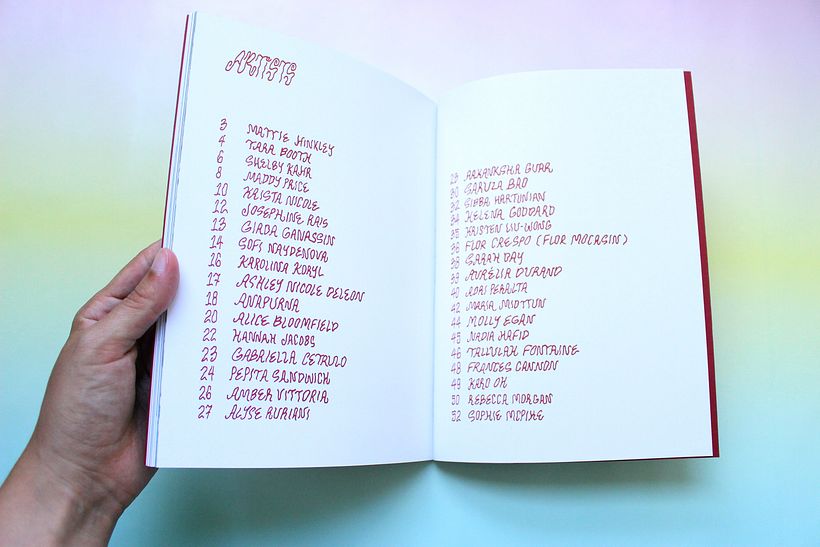 ARTISTS
3 MATTIE HINKLEY
4 TARA BOOTH
6 SHELBY KAHR
8 MADDY PRICE
10 KRISTA NICOLE
12 JOSEPHINE RAIS
13 GIADA GANASSIN
14 SOFI NAYDENOVA
16 KAROLINA KORYL
17 ASHLEY NICOLE DELEON
18 ANAPURNA
20 ALICE BLOOMFIELD
22 HANNAH JACOBS
23 GABRIELLA CETRULO
24 PEPITA SANDWICH
26 AMBER VITTORIA
27 ALYSE RURIANI
GABUZA BAO
32 SIBBA HARTUNIAN
34 HELENA GODDARD
35 KRISTEN LIU-WONG
36 FLOR CRESPO (FLOR MOCASIN)
38 SARAH DAY
39 AURÉLIA DURAND
40 ADRI PERALTA
42 MARIA MIDTTUN
44 MOLLY EGAN
45 NADIA HAFID
46 TALLULAH FONTAINE
48 FRANCES CANNON
49 KARO OH
50 REBECCA MORGAN
52 SOPHIE MCPIKE